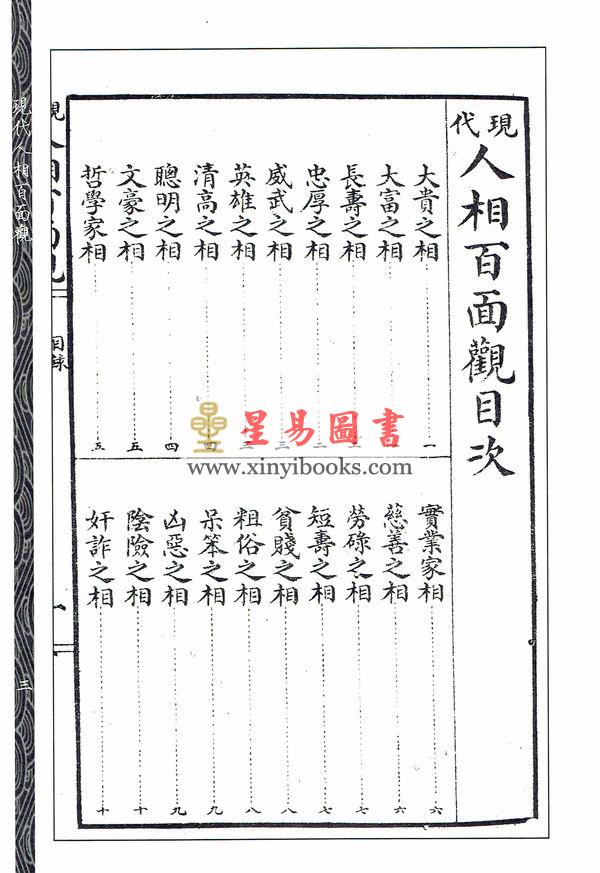 現代人相百面觀目次
大貴之相 一
大富之相
長壽之相
忠厚之相 二
威武之相 三
英雄之相
清高之相 四
聰明之相 四
文豪之相 五
哲學家相 五
實業家相 六
慈善之相 六
勞碌之相 七
短壽之相 七
貧賤之相 八
粗俗之相 八
呆笨之相 九
凶惡之相 九
陰險之相 十
奸詐之相 十
目錄
現代人相百面觀
三
星易圖書
www.xinyibooks.com